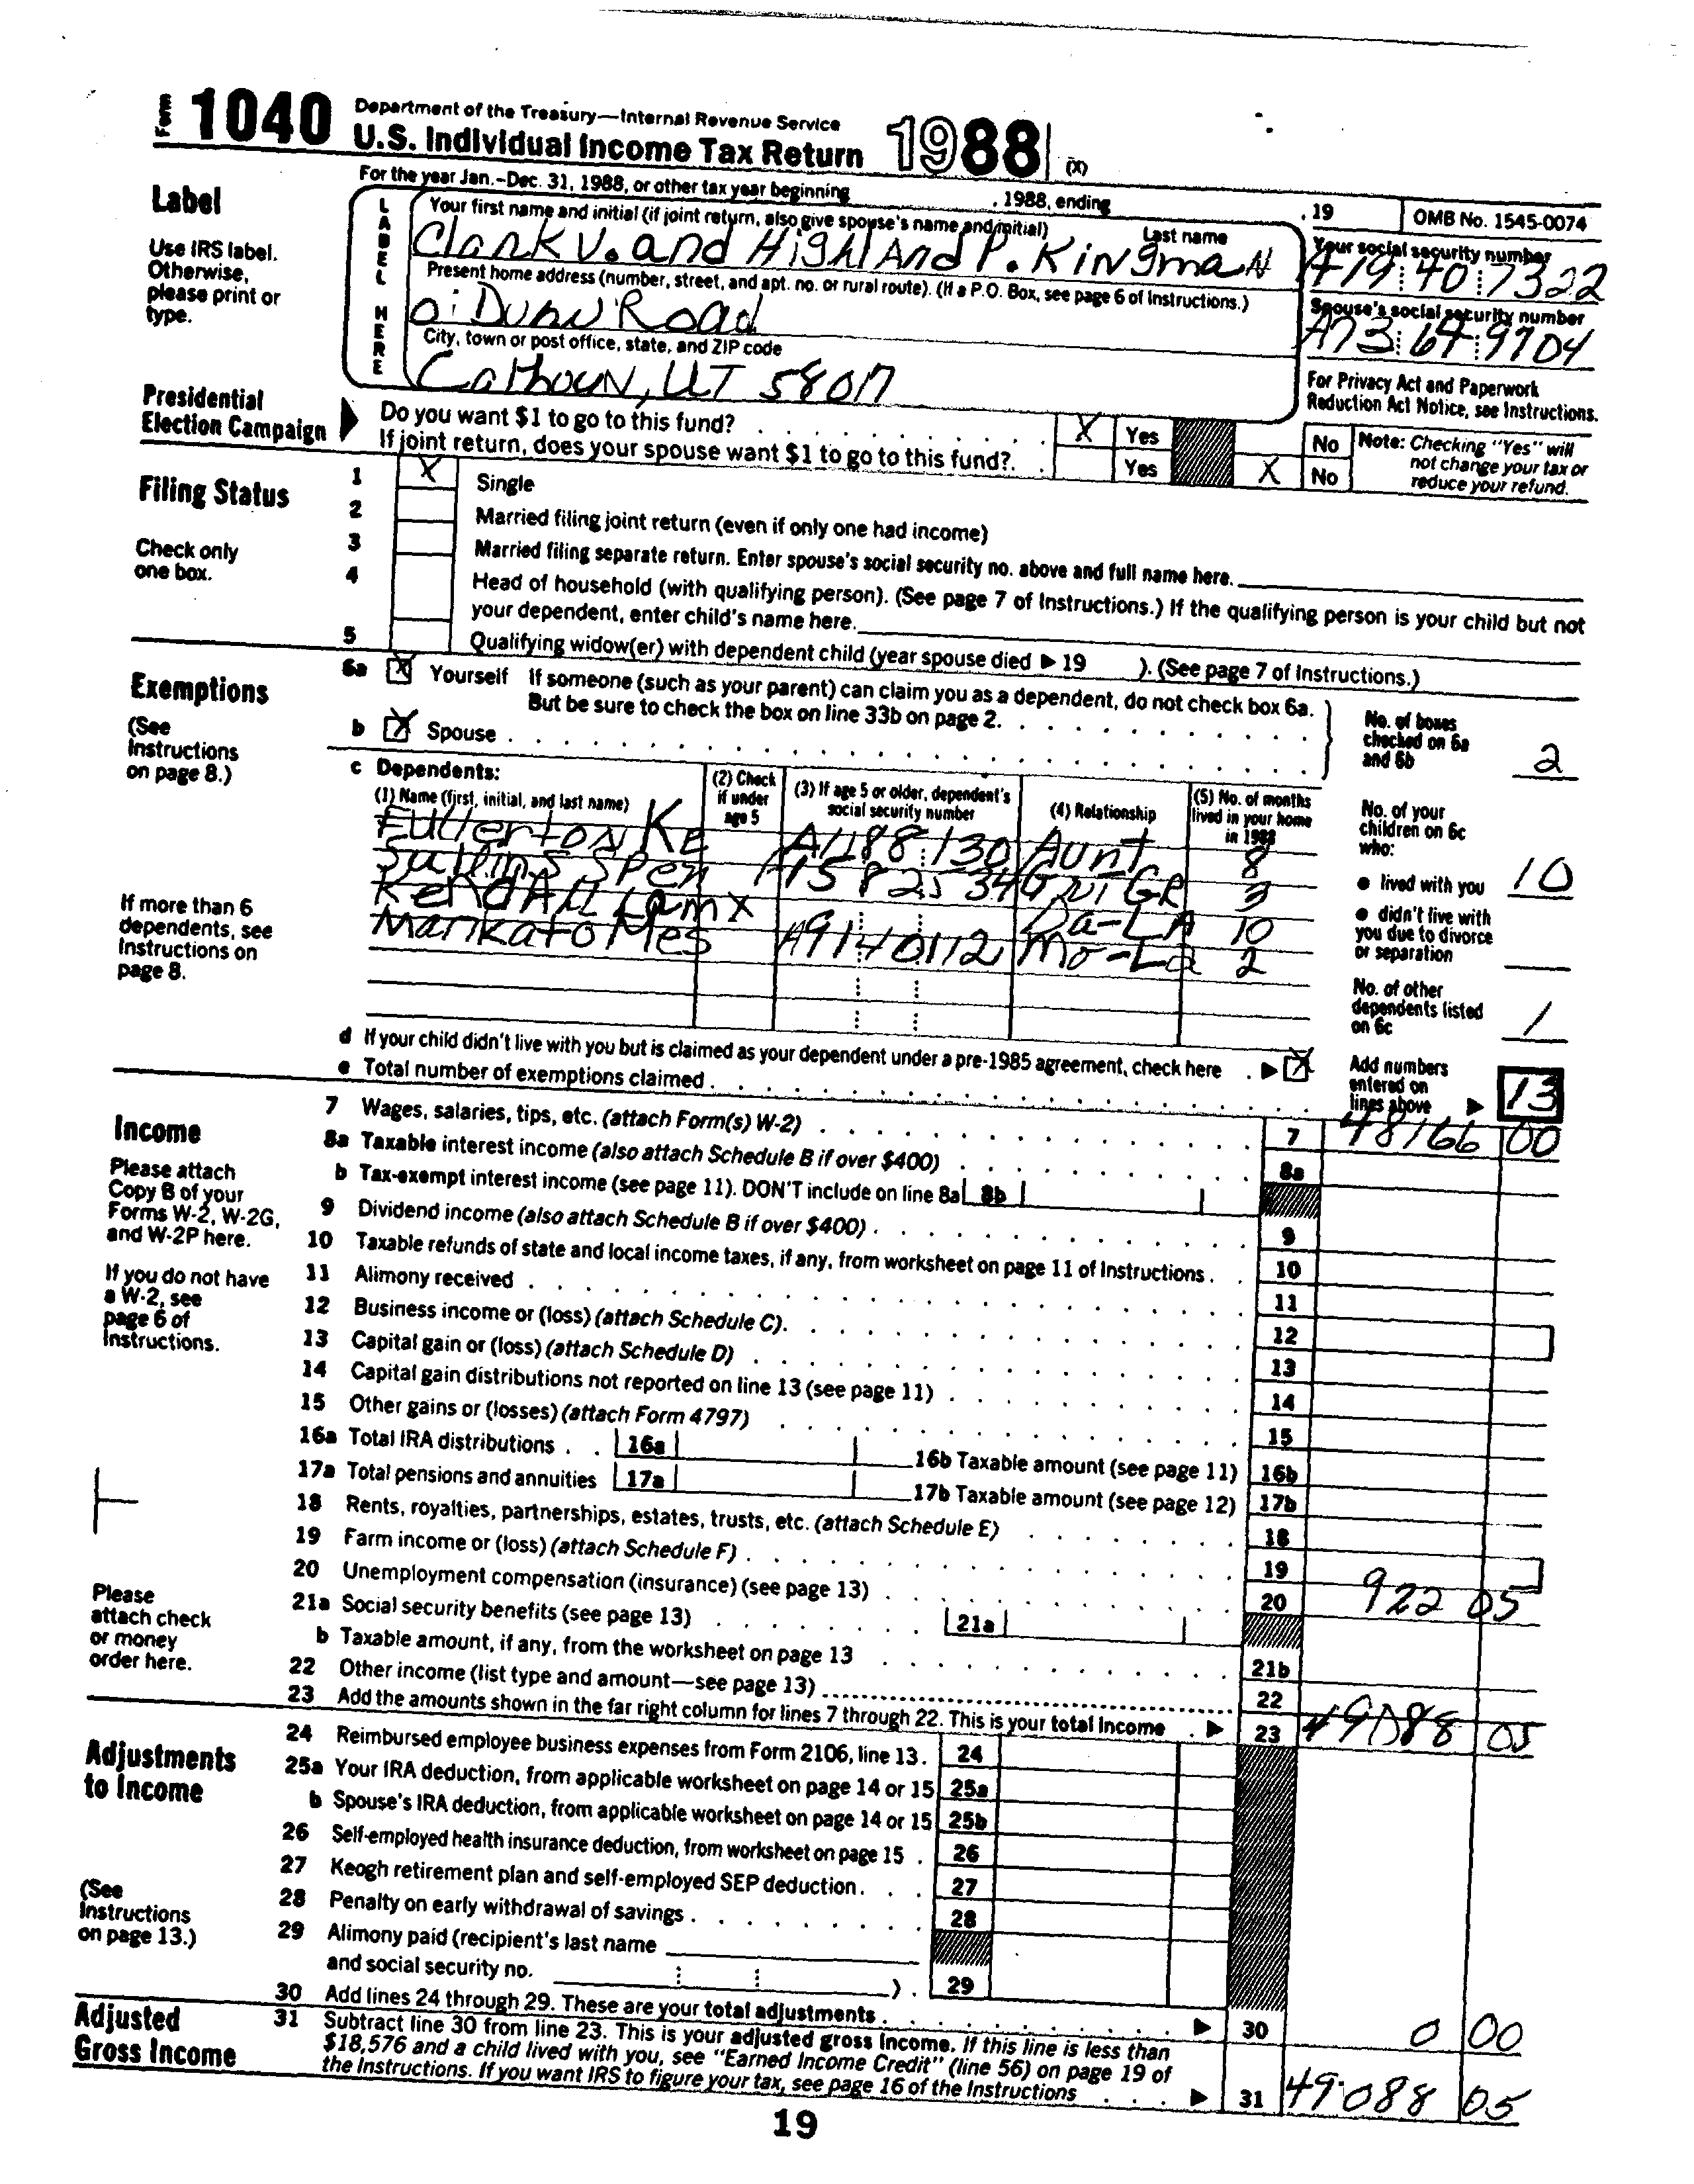 Form 1040 Department of the Treasury—Internal Revenue Service
U.S. Individual Income Tax Return 1988 (X)
For the year Jan.–Dec. 31, 1988, or other tax year beginning , 1988, ending , 19 OMB No. 1545-0074
Label
Use IRS label. Otherwise, please print or type.
LABEL HERE
Your first name and initial (if joint return, also give spouse's name and initial) Last name
Clark V. and HighlAnd P. KingmaN
Your social security number
A19 40 7322
Present home address (number, street, and apt. no. or rural route). (If a P.O. Box, see page 6 of Instructions.)
Dunn Road
Spouse's social security number
A73 64 9704
City, town or post office, state, and ZIP code
CalhouN, UT 58017
For Privacy Act and Paperwork Reduction Act Notice, see Instructions.
Presidential Election Campaign
Do you want $1 to go to this fund? X Yes No
If joint return, does your spouse want $1 to go to this fund? Yes X No
Note: Checking "Yes" will not change your tax or reduce your refund.
Filing Status
Check only one box.
1 X Single
2 Married filing joint return (even if only one had income)
3 Married filing separate return. Enter spouse's social security no. above and full name here.
4 Head of household (with qualifying person). (See page 7 of Instructions.) If the qualifying person is your child but not
your dependent, enter child's name here.
5 Qualifying widow(er) with dependent child (year spouse died ▶ 19 ). (See page 7 of Instructions.)
Exemptions
(See Instructions on page 8.)
6a X Yourself If someone (such as your parent) can claim you as a dependent, do not check box 6a.
But be sure to check the box on line 33b on page 2.
b X Spouse
No. of boxes checked on 6a and 6b 2
c Dependents:
(1) Name (first, initial, and last name) (2) Check if under age 5 (3) If age 5 or older, dependent's social security number (4) Relationship (5) No. of months lived in your home in 1988
Fullerton Ke A1188 130 Aunt 8
Sullins Spen 3
KendAll Lam X Da-LA 10
Mankato Mes A9140112 Mo-La 2
If more than 6 dependents, see Instructions on page 8.
No. of your children on 6c who:
● lived with you 10
● didn't live with you due to divorce or separation
No. of other dependents listed on 6c 1
d If your child didn't live with you but is claimed as your dependent under a pre-1985 agreement, check here ▶ X
e Total number of exemptions claimed
Add numbers entered on lines above ▶ 13
Income
Please attach Copy B of your Forms W-2, W-2G, and W-2P here.
If you do not have a W-2, see page 6 of Instructions.
Please attach check or money order here.
7 Wages, salaries, tips, etc. (attach Form(s) W-2) 7 48166 00
8a Taxable interest income (also attach Schedule B if over $400) 8a
b Tax-exempt interest income (see page 11). DON'T include on line 8a 8b
9 Dividend income (also attach Schedule B if over $400) 9
10 Taxable refunds of state and local income taxes, if any, from worksheet on page 11 of Instructions 10
11 Alimony received 11
12 Business income or (loss) (attach Schedule C) 12
13 Capital gain or (loss) (attach Schedule D) 13
14 Capital gain distributions not reported on line 13 (see page 11) 14
15 Other gains or (losses) (attach Form 4797) 15
16a Total IRA distributions 16a 16b Taxable amount (see page 11) 16b
17a Total pensions and annuities 17a 17b Taxable amount (see page 12) 17b
18 Rents, royalties, partnerships, estates, trusts, etc. (attach Schedule E) 18
19 Farm income or (loss) (attach Schedule F) 19
20 Unemployment compensation (insurance) (see page 13) 20 922 05
21a Social security benefits (see page 13) 21a
b Taxable amount, if any, from the worksheet on page 13 21b
22 Other income (list type and amount—see page 13) 22
23 Add the amounts shown in the far right column for lines 7 through 22. This is your total income ▶ 23 49088 05
Adjustments to Income
(See Instructions on page 13.)
24 Reimbursed employee business expenses from Form 2106, line 13. 24
25a Your IRA deduction, from applicable worksheet on page 14 or 15 25a
b Spouse's IRA deduction, from applicable worksheet on page 14 or 15 25b
26 Self-employed health insurance deduction, from worksheet on page 15 26
27 Keogh retirement plan and self-employed SEP deduction 27
28 Penalty on early withdrawal of savings 28
29 Alimony paid (recipient's last name
and social security no. ) 29
30 Add lines 24 through 29. These are your total adjustments ▶ 30 0 00
Adjusted Gross Income
31 Subtract line 30 from line 23. This is your adjusted gross income. If this line is less than
$18,576 and a child lived with you, see "Earned Income Credit" (line 56) on page 19 of
the Instructions. If you want IRS to figure your tax, see page 16 of the Instructions ▶ 31 49088 05
19